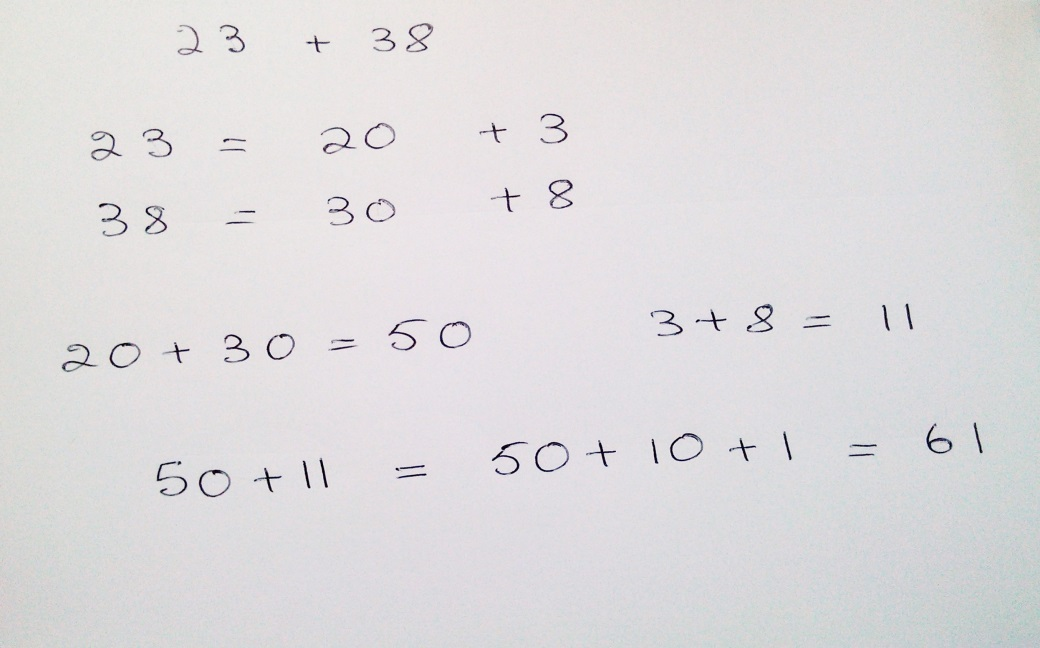 23 + 38
23 = 20 + 3
38 = 30 + 8
20 + 30 = 50 3 + 8 = 11
50 + 11 = 50 + 10 + 1 = 61